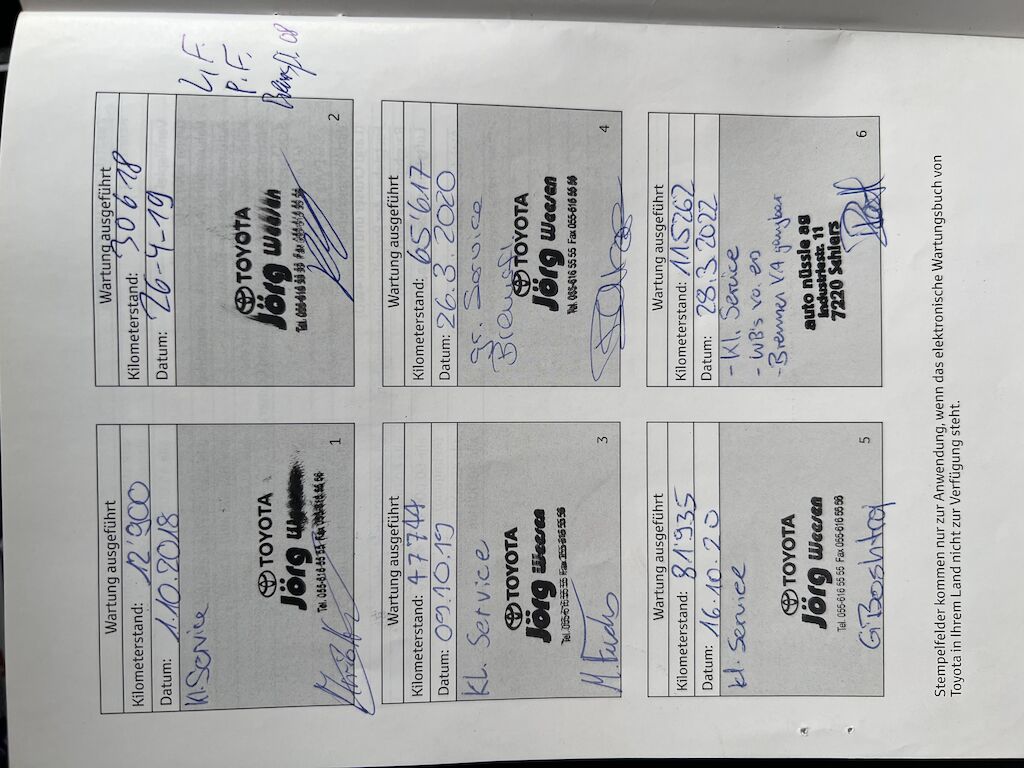 Wartung ausgeführt
Kilometerstand: 12'900
Datum: 1.10.2018
Kl. Service
TOYOTA
Jörg Weesen
Tel. 055-616 55 55 Fax 055-616 55 56
1
L.F.
P.F.
Wartung ausgeführt
Kilometerstand: 30618
Datum: 26-4-19
TOYOTA
Jörg Weesen
Tel. 055-616 55 55 Fax 055-616 55 56
2
Wartung ausgeführt
Kilometerstand: 47744
Datum: 09.10.19
Kl. Service
TOYOTA
Jörg Weesen
Tel. 055-616 55 55 Fax 055-616 55 56
M. Fuchs
3
Wartung ausgeführt
Kilometerstand: 65'617
Datum: 26.3.2020
gr. Service
TOYOTA
Jörg Weesen
Tel. 055-616 55 55 Fax 055-616 55 56
4
Wartung ausgeführt
Kilometerstand: 81935
Datum: 16.10.20
kl. Service
TOYOTA
Jörg Weesen
Tel. 055-616 55 55 Fax 055-616 55 56
5
Wartung ausgeführt
Kilometerstand: 115262
Datum: 28.3.2022
- Kl. Service
- WB's vo. en
- Bremsen VA gangbar
auto nüssle ag
Industriestr. 11
7220 Schiers
6
Stempelfelder kommen nur zur Anwendung, wenn das elektronische Wartungsbuch von
Toyota in Ihrem Land nicht zur Verfügung steht.